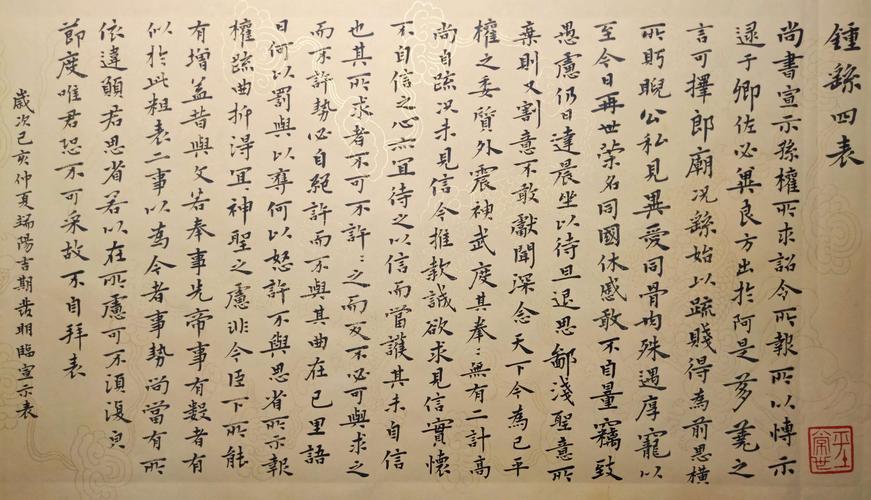 鍾繇四表
尚書宣示孫權所求詔令所報所以博示
逮于卿佐必冀良方出於阿是芻蕘之
言可擇郎廟況繇始以疏賤得為前恩橫
所眄睨公私見異愛同骨肉殊遇厚寵以
至今日再世榮名同國休慼敢不自量竊致
愚慮仍日達晨坐以待旦退思鄙淺聖意所
棄則又割意不敢獻聞深念天下今為已平
權之委質外震神武度其拳〻無有二計高
尚自疏況未見信今推款誠欲求見信實懷
不自信之心亦宜待之以信而當護其未自信
也其所求者不可不許〻之而反不必可與求之
而不許勢必自絕許而不與其曲在己里語
曰何以罰與以奪何以怒許不與思省所示報
權疏曲折得宜神聖之慮非今臣下所能
有增益昔與文若奉事先帝事有數者有
似於此粗表二事以為今者事勢尚當有所
依違願君思省若以在所慮可不須復貞
節度唯君恐不可采故不自拜表
歲次己亥仲夏端陽吉期 明臨宣示表